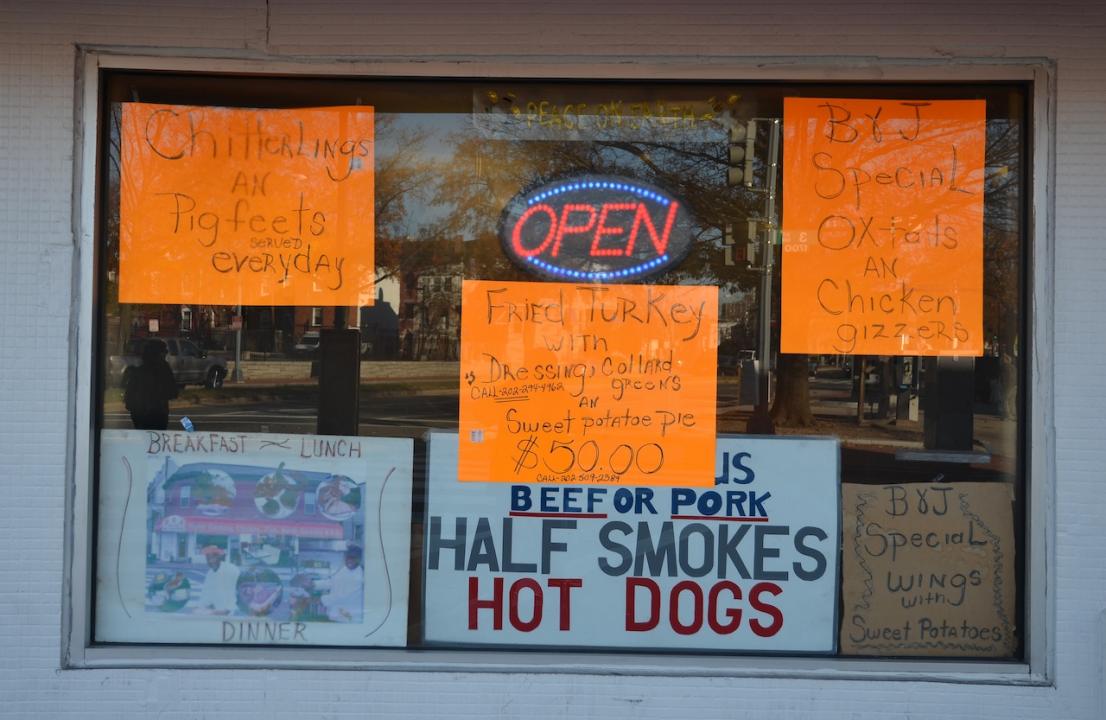 Chitterlings
AN
Pig feets
SERVED
everyday
PEACE ON EARTH
OPEN
B&J
Special
OX-tails
AN
Chicken
gizzers
FRIED TURKEY
WITH
DRESSING, Collard
CALL-202-294-4962 greens
AN
Sweet potatoe pie
$50.00
CALL-202-509-2589
BREAKFAST LUNCH
DINNER
US
BEEF OR PORK
HALF SMOKES
HOT DOGS
B&J
Special
WINGS
with
Sweet Potatoes